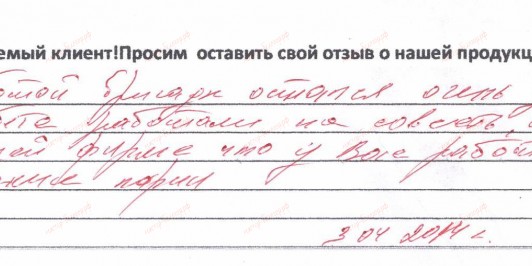 емый клиент!Просим оставить свой отзыв о нашей продукц
отой остался очень
работали на совесть,
ей фирме что у Вас работ
парни
3 04 2014 г.